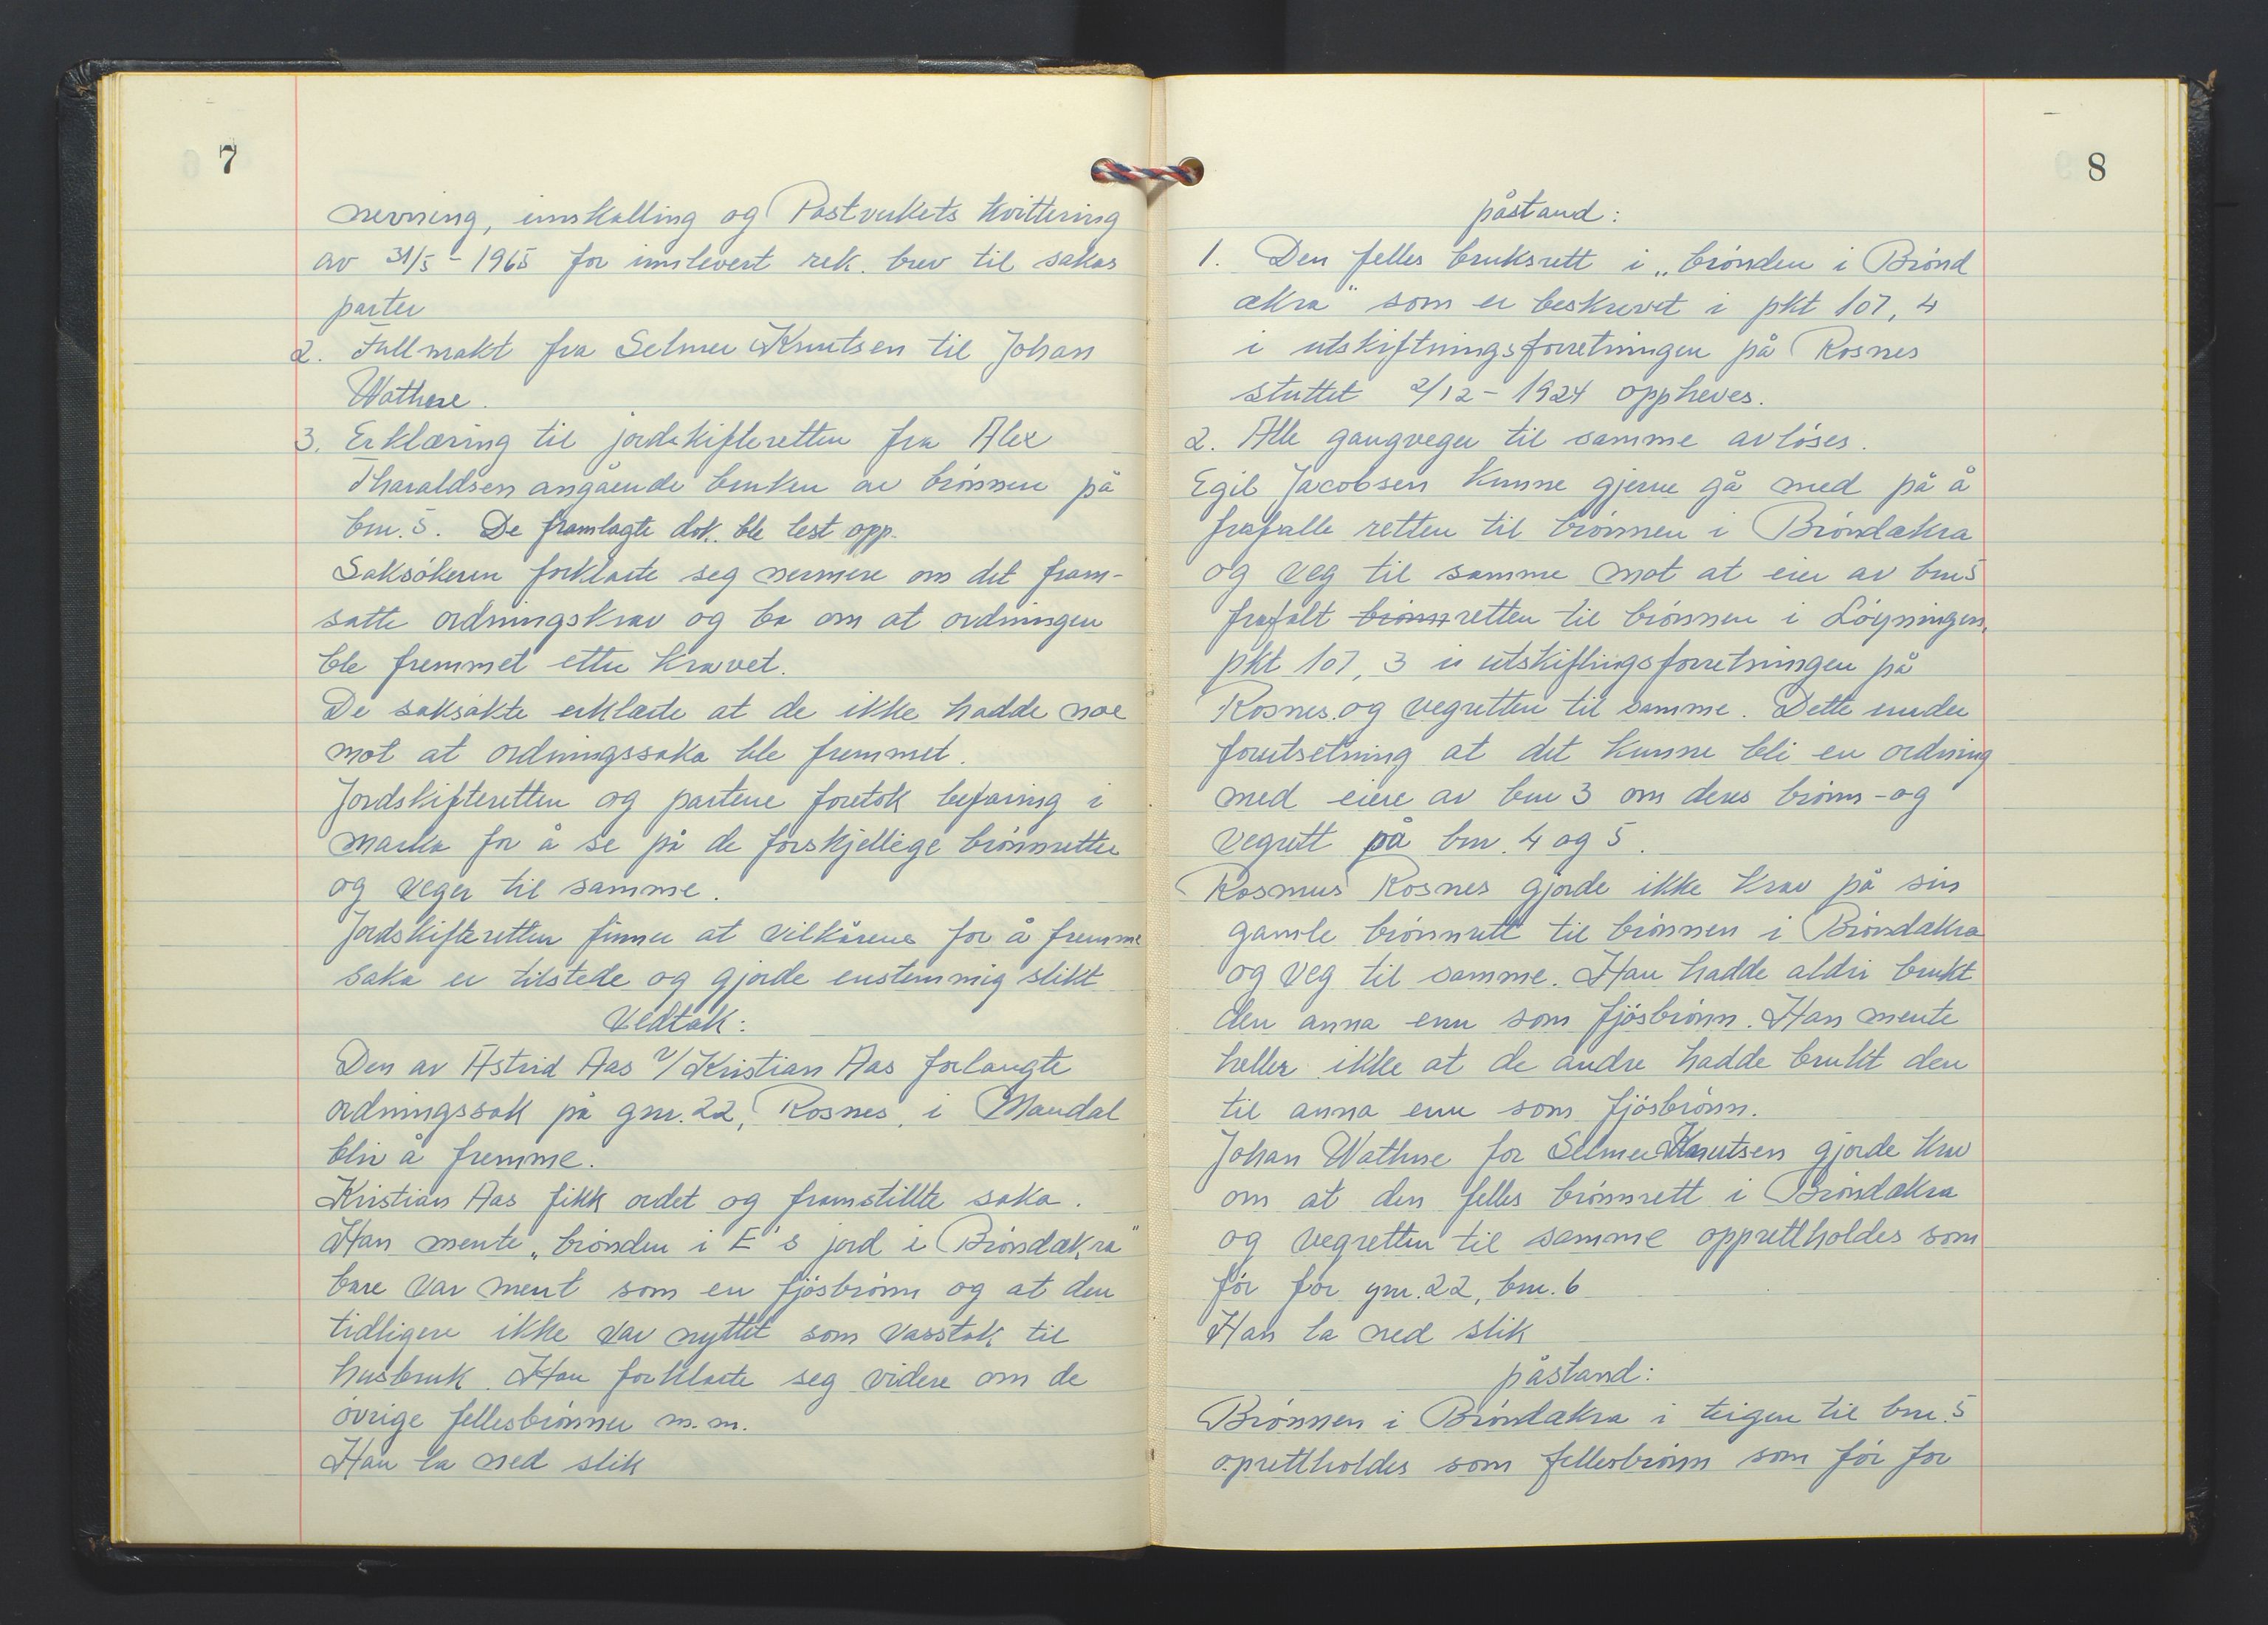 7
nevning, innkalling og Postverkets kvittering
av 31/5 - 1965 for innlevert rek. brev til sakas
parter
2. Fullmakt fra Selmer Knutsen til Johan
Wathne.
3. Erklæring til jordskifteretten fra Alex
Tharaldsen angående bruken av brönnen på
bnr. 5. De framlagte dok. ble lest opp.
Saksökeren forklarte seg nermere om det fram-
satte ordningskrav og ba om at ordningen
ble fremmet etter kravet.
De saksökte erklærte at de ikke hadde noe
mot at ordningssaka ble fremmet.
Jordskifteretten og partene foretok befaring i
marka for å se på de forskjellige brönnretter
og veger til samme.
Jordskifteretten finner at vilkårene for å fremme
saka er tilstede og gjorde enstemmig slikt
Vedtak:
Den av Astrid Aas v/Kristian Aas forlangte
ordningssak på gnr. 22, Rosnes, i Mandal
blir å fremme.
Kristian Aas fikk ordet og framstillte saka.
Han mente „brönden i E's jord i Bröndækra"
bare var ment som en fjösbrönn og at den
tidligere ikke var nyttet som vasstak til
husbruk. Han forklarte seg videre om de
övrige fellesbrönner m.m.
Han la ned slik
8
påstand:
1. Den felles bruksrett i „brönden i Brönd
ækra" som er beskrevet i pkt 107, 4
i utskiftningsforretningen på Rosnes
sluttet 2/12 - 1924 oppheves.
2. Alle gangveger til samme avlöses.
Egil Jacobsen kunne gjerne gå med på å
frafalle retten til brönnen i Bröndækra
og veg til samme mot at eier av bnr 5
frafalt brönnretten til brönnen i Löyningen,
pkt 107, 3 i utskiftingsforretningen på
Rosnes og vegretten til samme. Dette under
forutsetning at det kunne bli en ordning
med eiere av bnr 3 om deres brönn- og
vegrett på bnr. 4 og 5.
Rasmus Rosnes gjorde ikke krav på sin
gamle brönnrett til brönnen i Bröndækra
og veg til samme. Han hadde aldri brukt
den anna enn som fjösbrönn. Han mente
heller ikke at de andre hadde brukt den
til anna enn som fjösbrönn.
Johan Wathne for Selmer Knutsen gjorde krav
om at den felles brönnrett i Bröndækra
og vegretten til samme opprettholdes som
för for gnr. 22, bnr. 6
Han la ned slik
påstand:
Brönnen i Bröndækra i teigen til bnr. 5
oprettholdes som fellesbrönn som för for